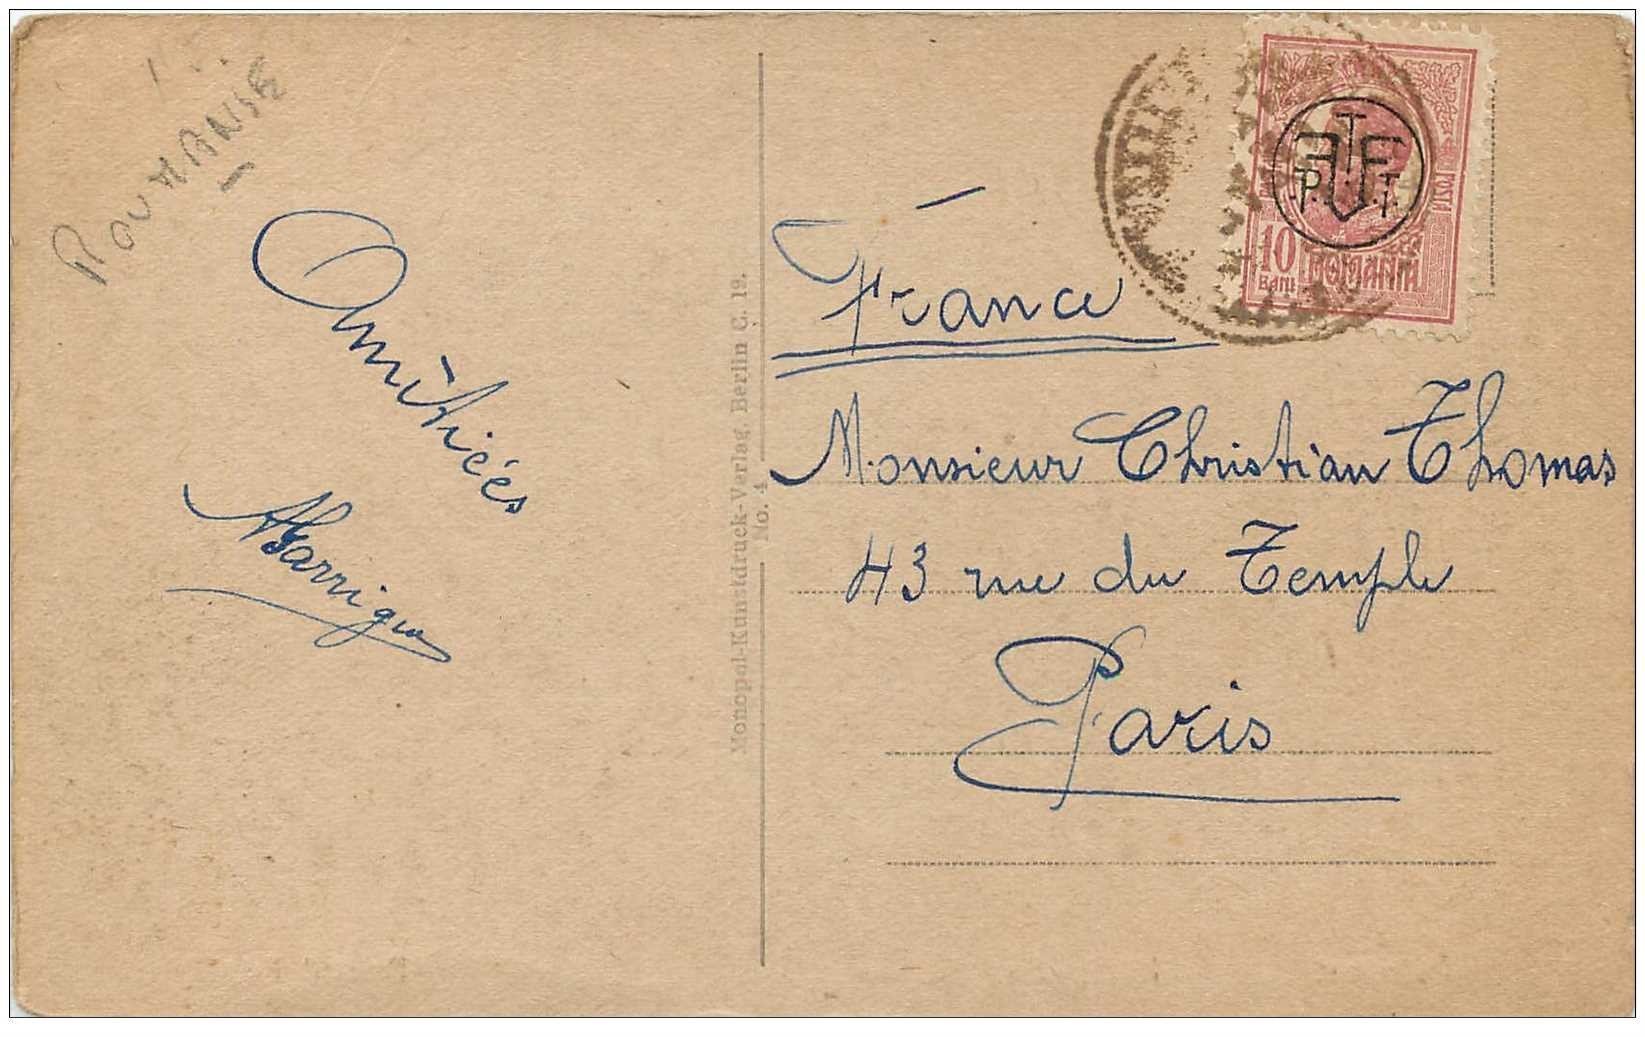 ROUMANIE
Amitiés
Monopol-Kunstdruck-Verlag, Berlin C. 19.
No. 4
POSTA
P. T. T.
10
BANI
ROMANIA
France
Monsieur Christian Thomas
43 rue du Temple
Paris